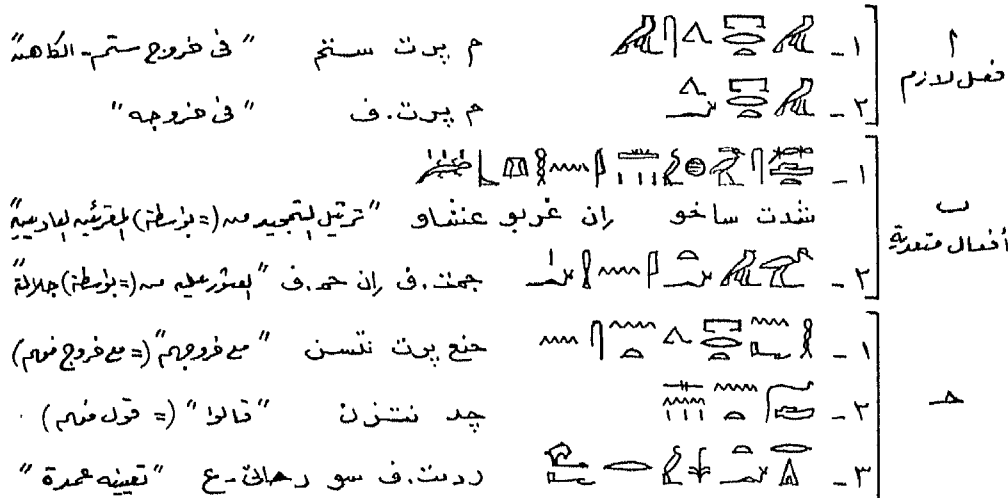 أ
فعل لازم
١ - م برت ستم "فى خروج ستم - الكاهن"
٢ - م برت.ف "فى خروجه"
ب
أفعال متعدية
١ -
شدت ساخو ران غربو عنشاو "ترتيل التمجيد من (= بواسطة) المقرئين العاديين"
٢ - جمت.ف ران حم.ف "العثور عليه من (= بواسطة) جلالة"
حـ
١ - حنع برت نتسن "مع خروجهم" (= مع خروج منهم)
٢ - چد نتزن "قالوا" (= قول منهم) .
٣ - ردت.ف سو ع "تعيينه عمدة"